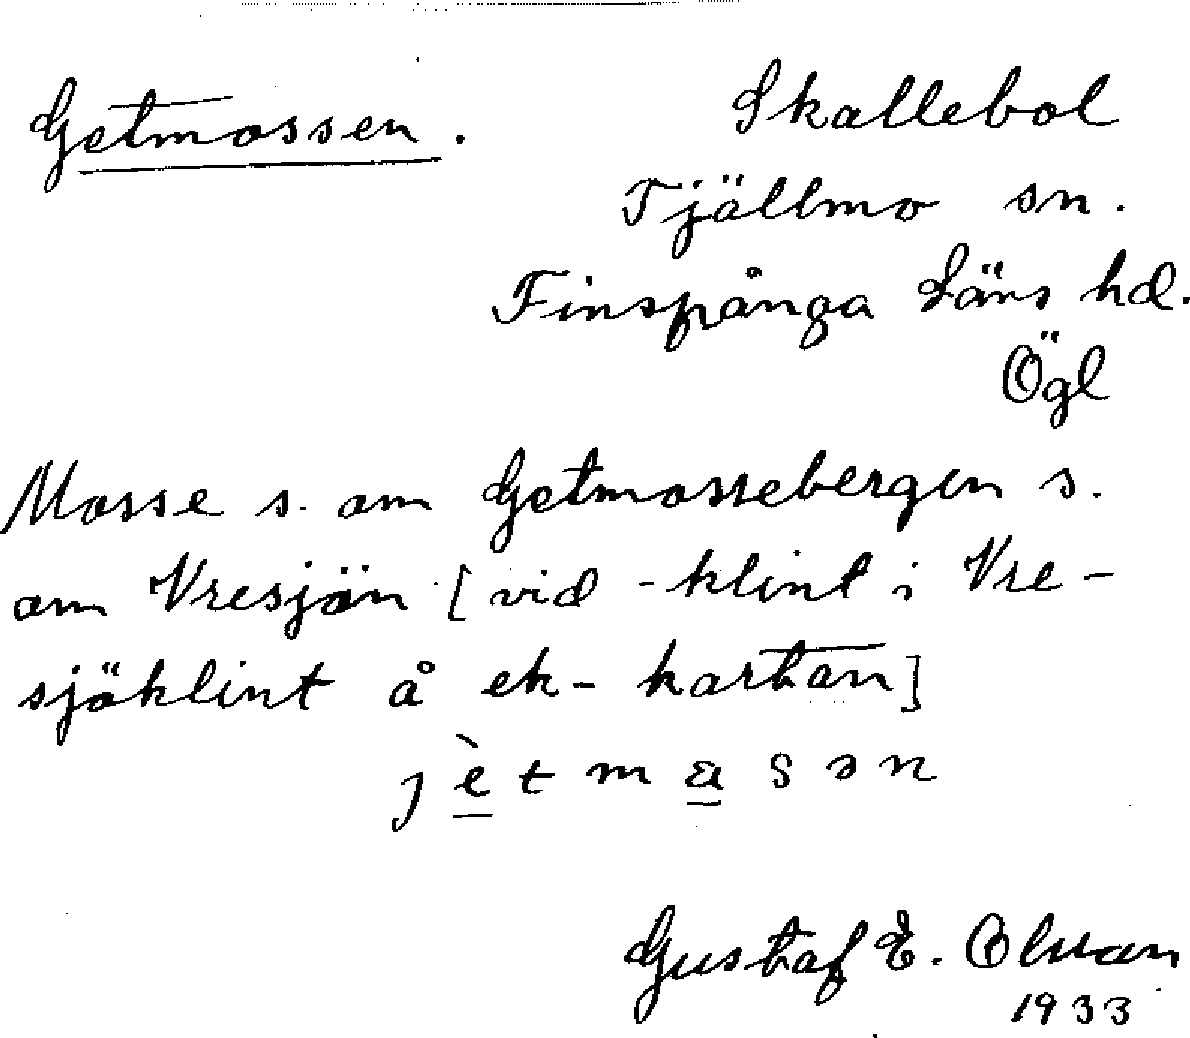 Getmossen.
Skallebol
Tjällmo sn.
Finspånga Läns hd.
Ögl
Mosse s. om Getmossebergen s.
om Vresjön [vid -klint i Vre-
sjöklint å ek-kartan]
Gustaf E. Olsson
1933